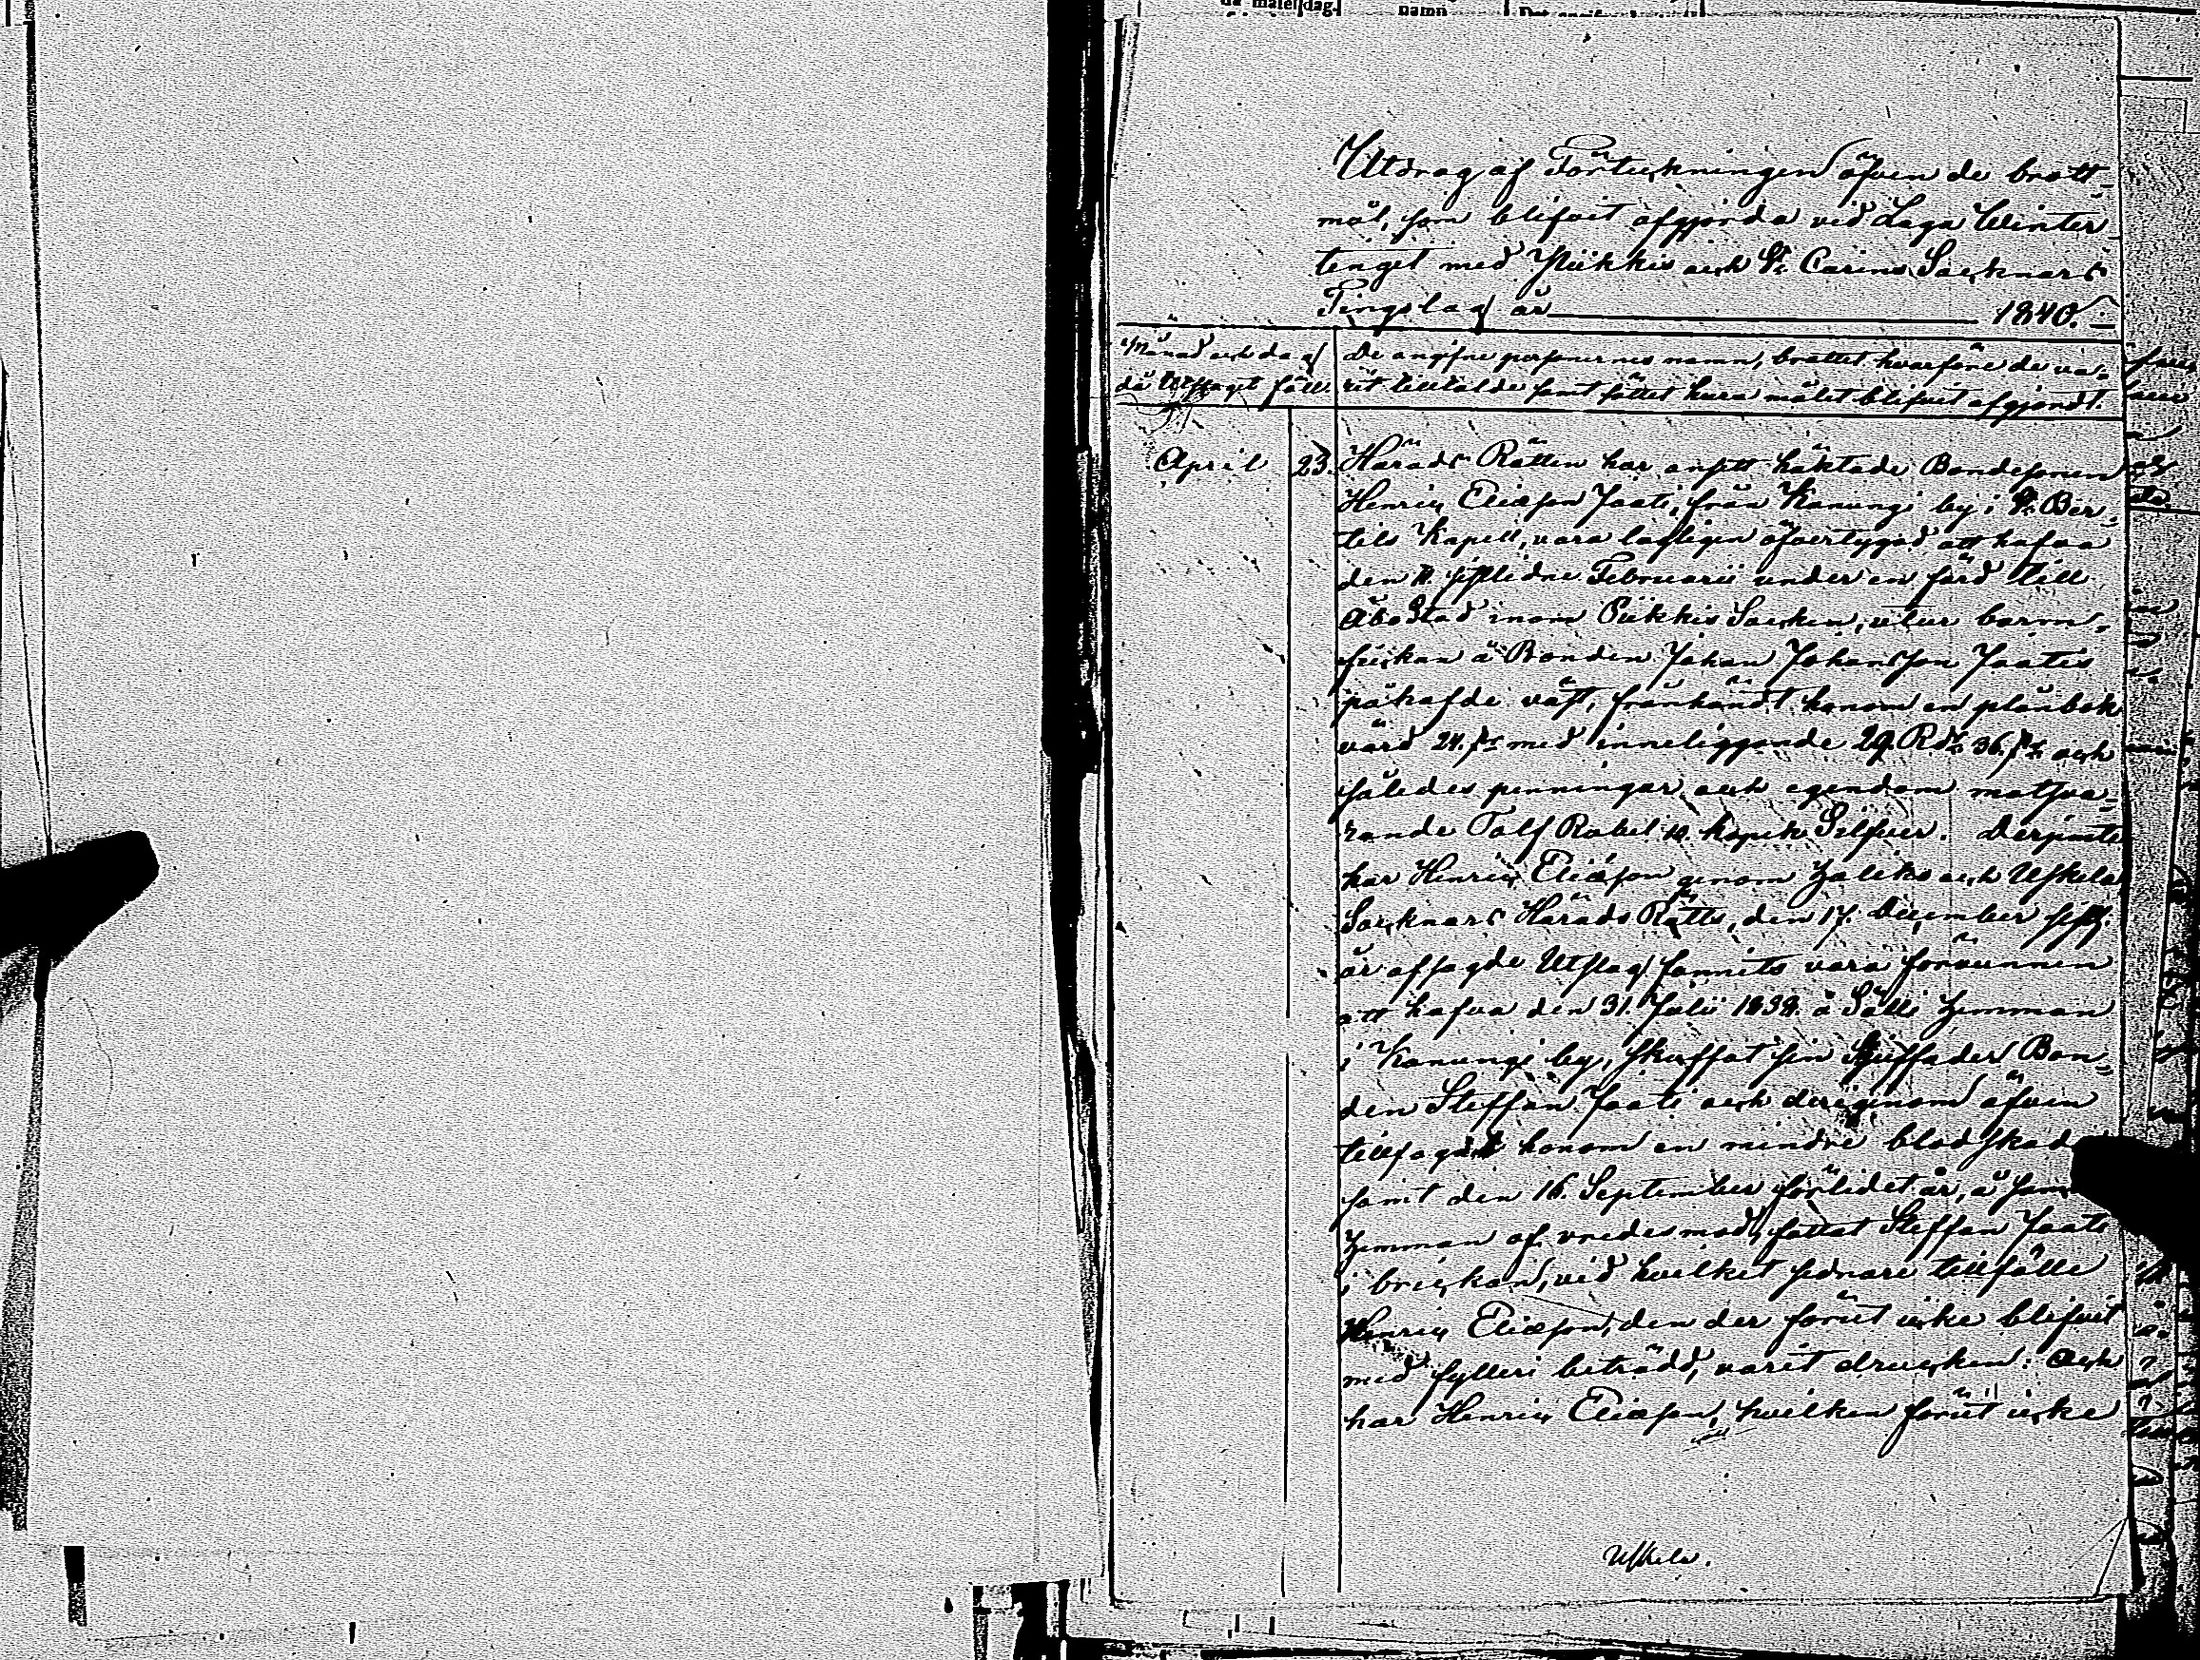 Utdrag af Förteckningen öfver de brott-
mål, som blifvit afgjorda vid Laga Winter-
tinget med Piikkis och St. Carins Socknars
Tingslag år 1840.
Månad och dag De angifne personernes namn, brottet hvarföre de va-
då Utslaget föll. rit tilltalde samt sättet huru målet blifvit afgjordt.
April 23. Härads Rätten har ansett häktade Bondesonen
Henric Eliæson Jaati, från Kanungi by i St. Ber-
tils Kapell, vara lagligen öfvertygad att hafva
den 11. sistlidne Februarii under en färd till
Åbo Stad inom Piikkis Socken, utur barm-
fickan å Bonden Johan Johansson Jaatis
påhafde väst, frånhändt honom en plånbok
värd 24. sk. med inneliggande 29. Rdr. 36. sk. och
således penningar och egendom motsva-
rande Tolf Rubel 10. kopek Silfver. Derjemte
har Henric Eliæson genom Haliko och Uskela
Socknars Härads Rätts, den 17. December sistl.
år afsagde Utslag funnits vara förvunnen
att hafva den 31. Julii 1838. å Sälli hemman
i Kanungi by, skuffat sin Stuffader Bon-
den Steffan Jaati och derigenom äfven
tillfogat honom en mindre blodskad
samt den 16. September förlidet år, å sam
hemman af vredesmod, fattat Steffan Jaati
i brickan, vid hvilket sednare tillfälle
Henric Eliæson, den der förut icke blifvit
med fylleri beträdd, varit drucken. Och
har Henric Eliæson, hvilken förut icke
Uskela.